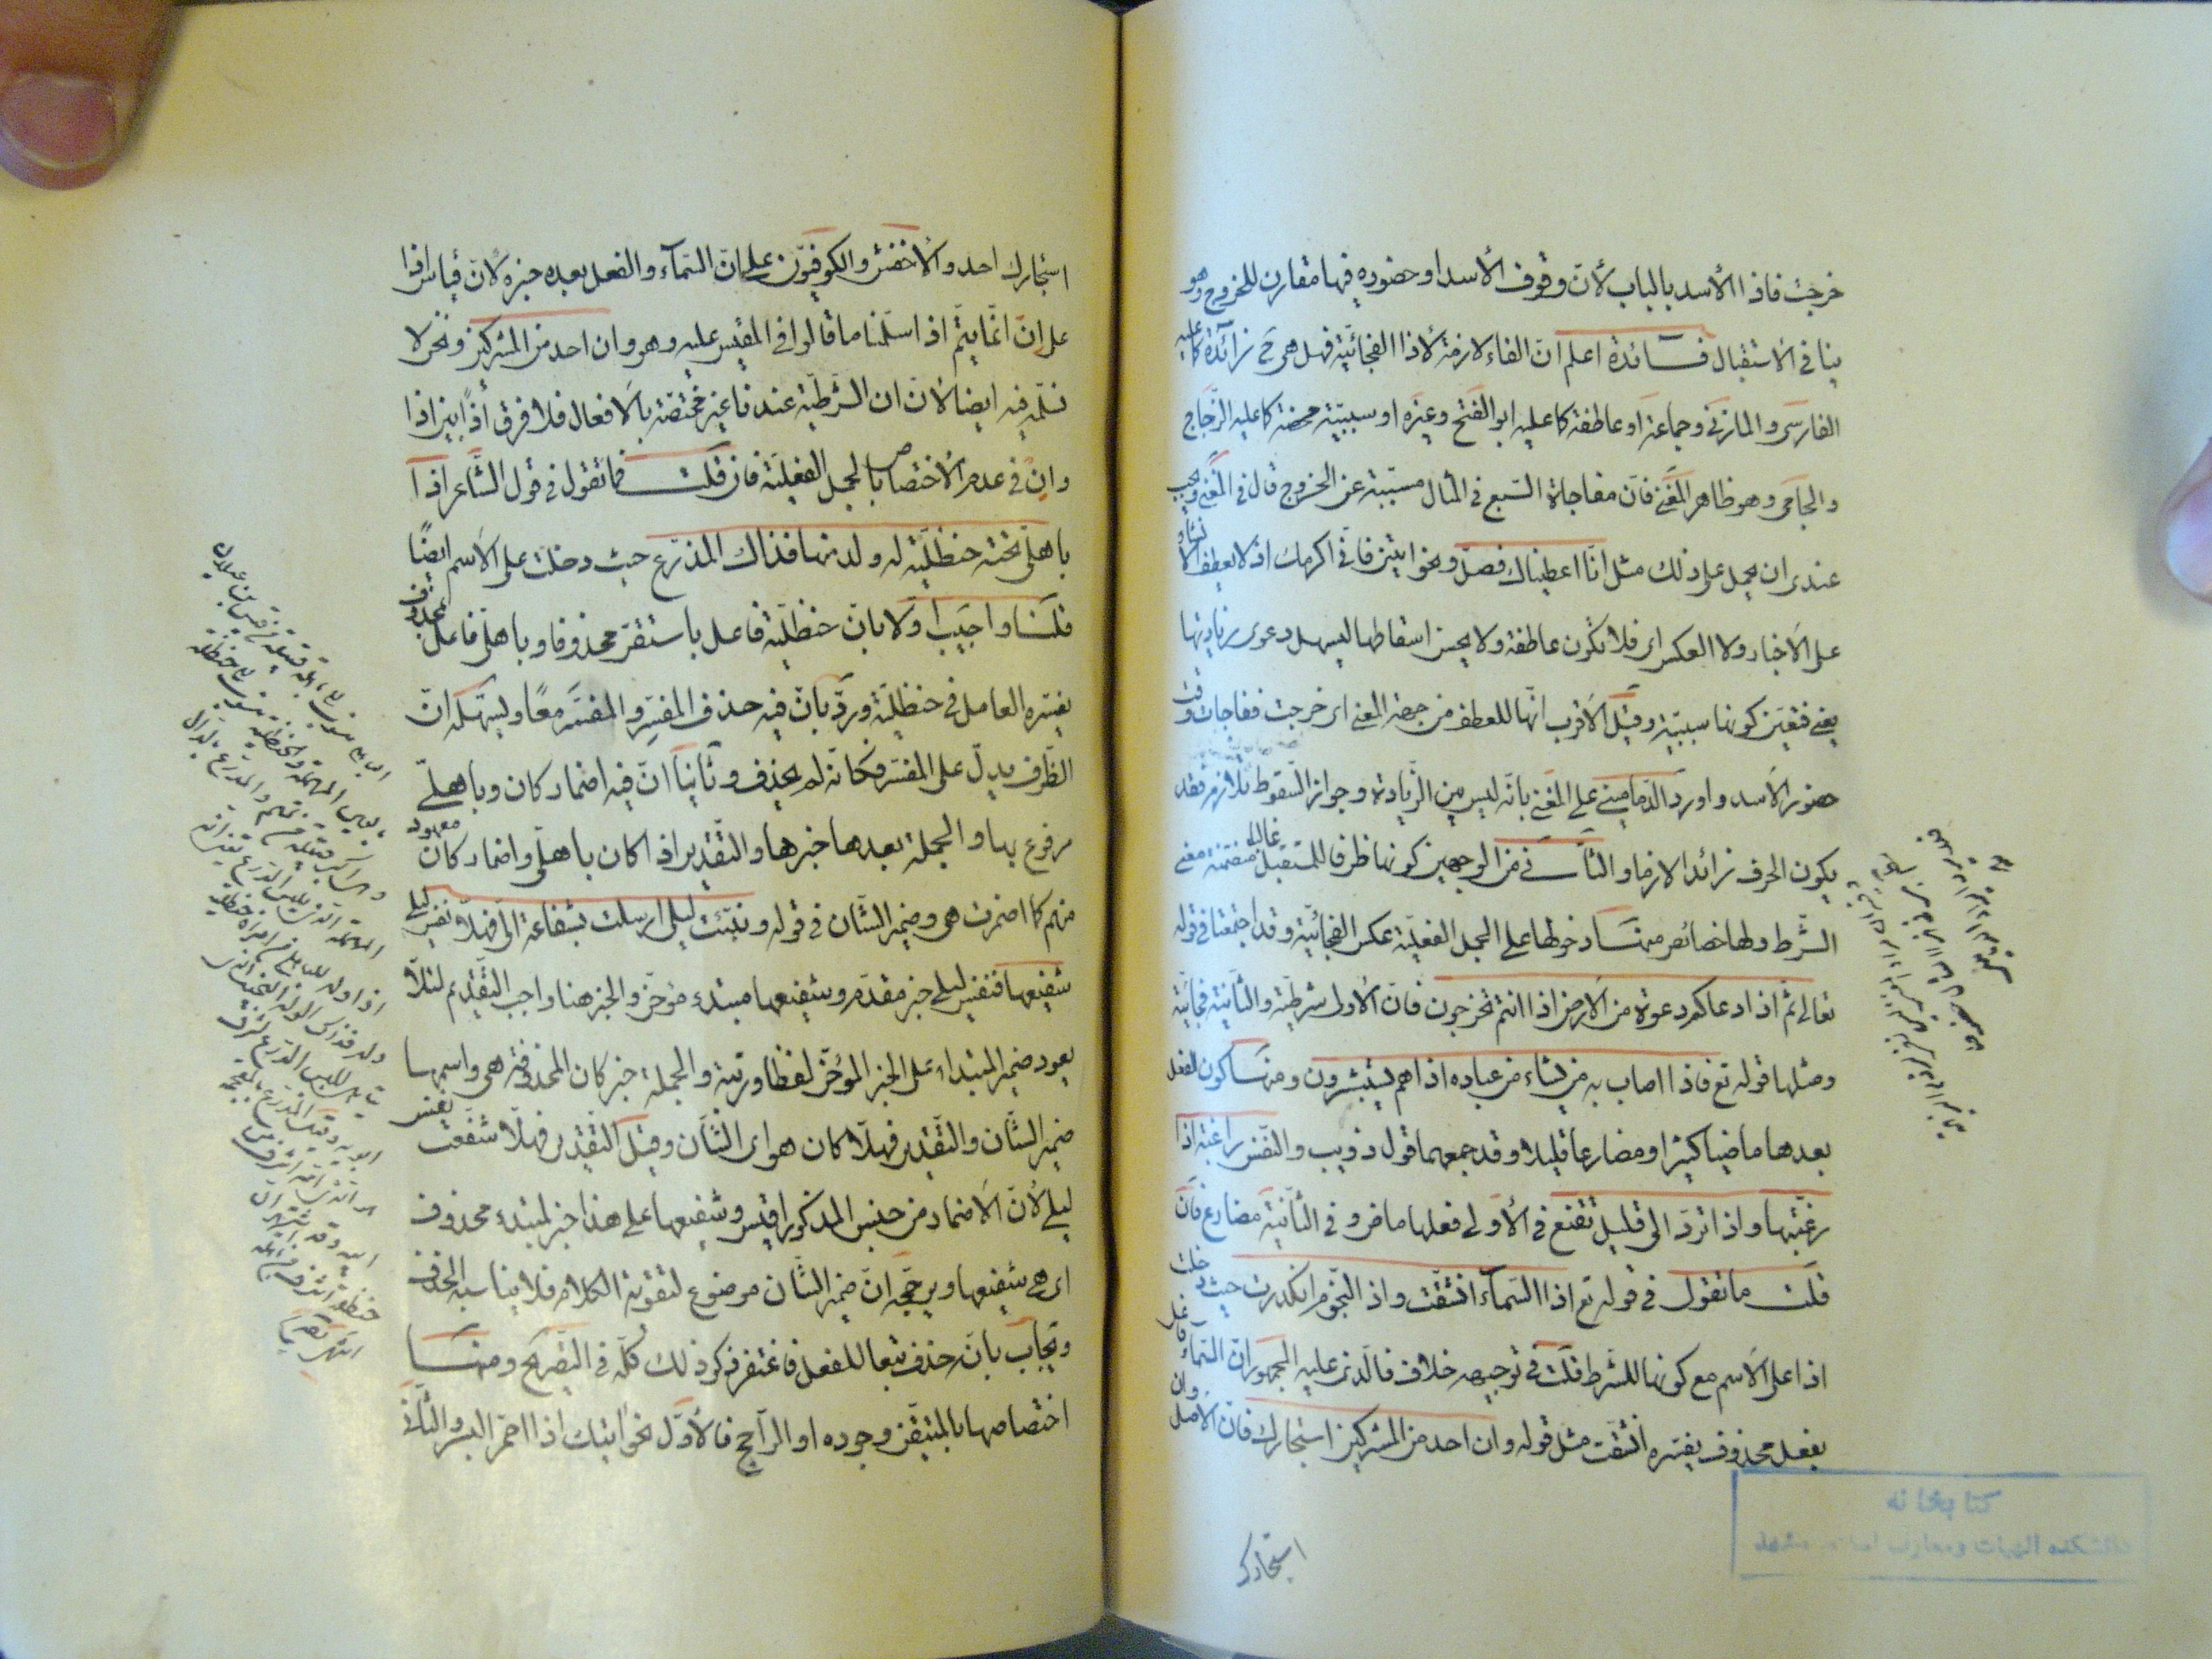 خرجت فاذا الأسد بالباب لأنّ وقوف الأسد او حضوره فيها مقارن للخروج وهو
ينافى الاستقبال فائدة اعلم انّ الفاء لازمة لاذا الفجائيّة فهل هى ح زائدة كما عليه
الفارسى والمازنى وجماعة او عاطفة كما عليه ابو الفتح وغيره او سببيّة محضة كما عليه الزّجاج
والجامى وهو ظاهر المغنى فانّ مفاجاة السّبع فى المثال مسبّبة عن الخروج قال فى المغنى ويجب
عندى ان يحمل على ذلك مثل انّا اعطيناك فصلّ ونحو ايتنى فانّى اكرمك اذ لا يعطف الانشاء
على الاخبار ولا العكس اى فلا تكون عاطفة ولا يحسن اسقاطها ليسهل دعوى زيادتها
يعنى فتعيّن كونها سببيّة وقيل الاقرب انّها للعطف من جهة المعنى اى خرجت ففاجات وقت
حضور الاسد واورد الدّمامينى على المغنى بانّه ليس بين الزّيادة وجواز السّقوط تلازم فقد
يكون الحرف زائدا لازما والثّانى من الوجهين كونها ظرفا للمستقبل غالبا متضمّنة معنى
الشّرط ولها خصائص منها دخولها على الجمل الفعليّة عكس الفجائيّة وقد اجتمعتا فى قوله
تعالى ثمّ اذا دعاكم دعوة من الارض اذا انتم تخرجون فانّ الاولى شرطيّة والثّانية فجائيّة
ومثلها قوله تع فاذا اصاب به من يشاء من عباده اذا هم يستبشرون ومنها كون الفعل
بعدها ماضيا كثيرا ومضارعا قليلا وقد جمعهما قول ذويب والنّفس راغبة اذا
رغّبتها واذا تردّ الى قليل تقنع فى الأولى فعلها ماض وفى الثّانية مضارع فان
قلت ما تقول فى قوله تع اذا السّمآء انشقّت واذا النّجوم انكدرت حيث دخلت
اذا على الاسم مع كونها للشّرط قلت فى توجيهه خلاف فالّذى عليه الجمهور ان السّمآء فاعل
بفعل محذوف يفسّره انشقّت مثل قوله وان احد من المشركين استجارك فانّ الاصل وان
استجارك
استجارك احد والأخفش والكوفيّون على انّ السّمآء والفعل بعده خبره لانّ قياس اذا
على ان انّما يتمّ اذا سلّمنا ما قالوا فى المقيس عليه وهو وان احد من المشركين ونحن لا
نسلّمه فيه ايضا لانّ ان الشّرطيّة عندنا غير مختصّة بالافعال فلا فرق اذا بين اذا
وان فى عدم الاختصاص بالجمل الفعليّة فان قلت فما تقول فى قول الشّاعر اذا
باهلىّ تحته حنظليّة له ولد منها فذاك المذرّع حيث دخلت على الاسم ايضًا
قلنا واجيب اوّلا بانّ حنظليّة فاعل باستقرّ محذوفا وباهلىّ فاعل بمحذوف
يفسّره العامل فى حنظليّة وردّ بانّ فيه حذف المفسِّر والمفسَّر معًا ويسهّله انّ
الظّرف يدلّ على المفسّر فكانّه لم يحذف وثانيا انّ فيه اضمار كان وباهلىّ
مرفوع بها والجملة بعدها خبرها والتّقدير اذا كان باهلىّ واضمار كان معهود
منهم كما اضمرت هى وضمير الشّان فى قوله ونبّئت ليلى ارسلت بشفاعة الىّ فهلّا نفس ليلى
شفيعها فنفس ليلى خبر مقدّم وشفيعها مبتدء مؤخّر والخبر هنا واجب التّقديم لئلّا
يعود ضمير المبتداء على الخبر المؤخّر لفظا ورتبة والجملة خبر كان المحذوفة هى واسمها
ضمير الشّان والتّقدير فهلّا كان هو اى الشّان وقيل التّقدير فهلّا شفعت نفس
ليلى لأنّ الاضمار من جنس المذكور اقيس وشفيعها على هذا خبر لمبتدء محذوف
اى هى شفيعها ويرجّحه انّ ضمير الشّان موضوع لتقوية الكلام فلا يناسبه الحذف
ويجاب بانّه حذف تبعا للفعل فاغتفر ذكر ذلك كلّه فى التّصريح ومنها
اختصاصها بالمتيقّن وجوده او الرّاجح فالأوّل نحو ايتك اذا احمرّ البسر والثّانى